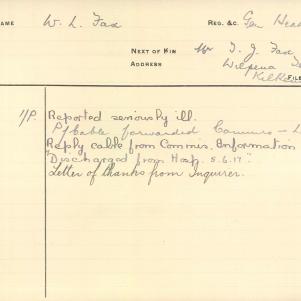 NAME W. L. Fax REG. &C. Gen Head
NEXT OF KIN Mr T. J. Fax
ADDRESS Wilpena
FILE
I/P. Reported seriously ill.
Cable forwarded Commrs -
Reply cable from Commis. Information
"Discharged from Hosp. 5.6.17."
Letter of thanks from Inquirer.